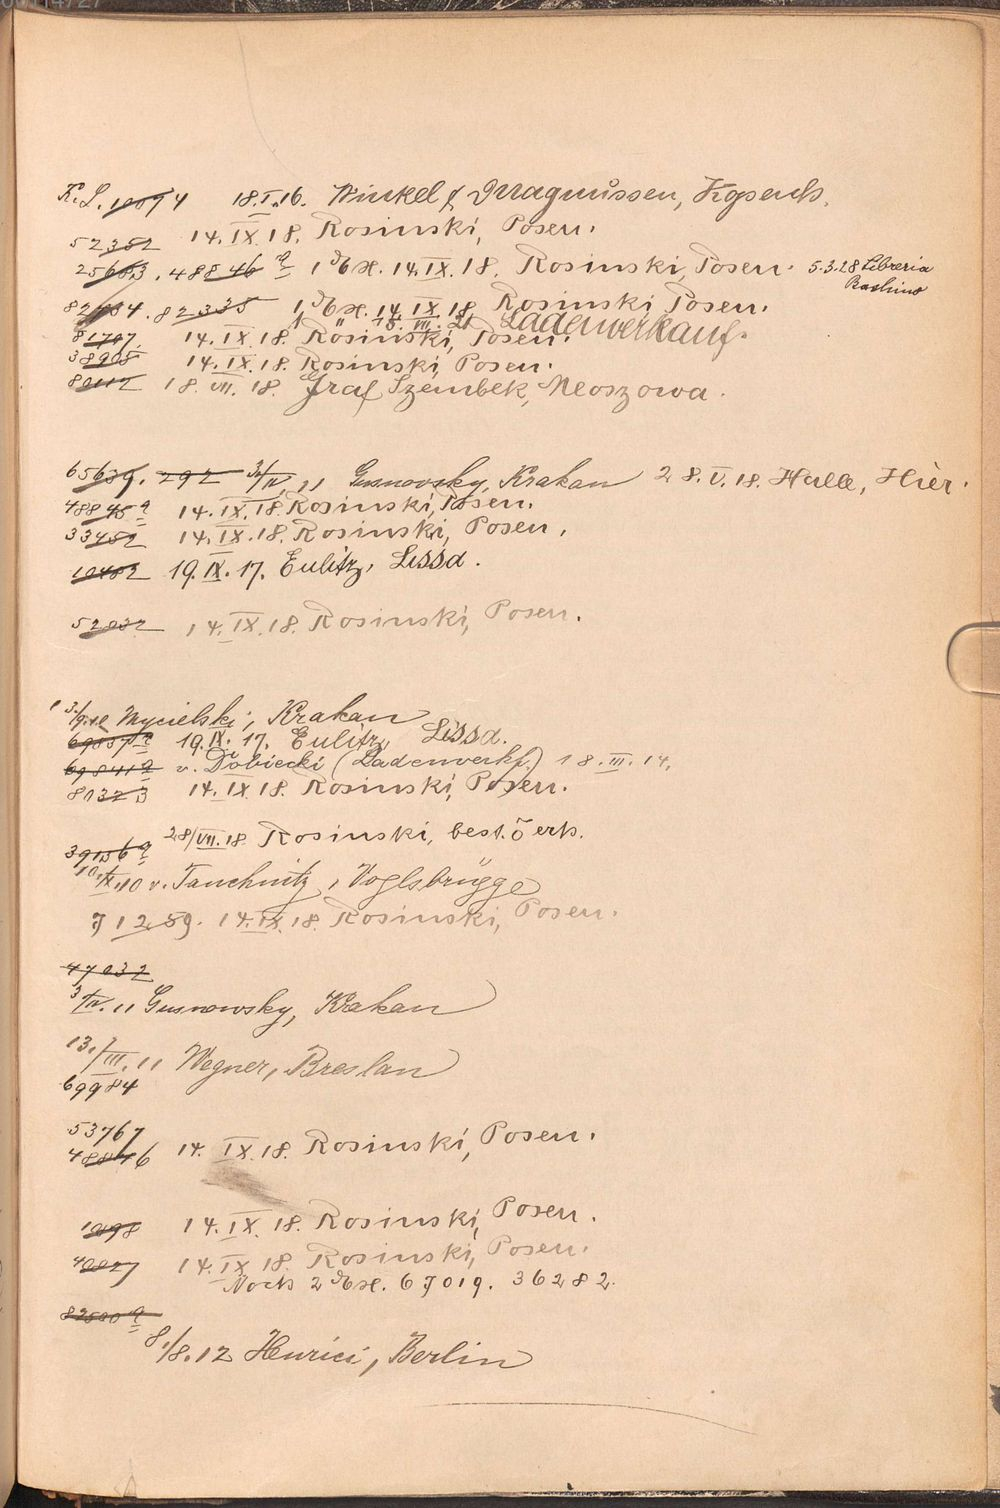 K.L. 10074 18.I.16. Winkel & Magnussen, Kopenh.
52382 14.IX.18. Rosinski, Posen.
25663. 48846 a 1 Ex. 14.IX.18. Rosinski, Posen. 5.3.28 Libreria
82404. 82335 1 Ex. 14.IX.18. Rosinski Posen.
1 " 15.III.21 Ladenverkauf.
81707. 14.IX.18. Rosinski, Posen.
38905 14.IX.18. Rosinski, Posen.
80112 18.VII.18. Graf Szembek,
65639. 292 3/IV.11 Gusnowsky, Krakau 28.V.18. Halle, Hier.
48845 a 14.IX.18. Rosinski, Posen.
33452 14.IX.18. Rosinski, Posen.
10482 19.IX.17. Eulitz, Lissa.
52032 14.IX.18. Rosinski, Posen.
13./9.10 Mycielski, Krakau
69837 a 19.IX.17. Eulitz, Lissa.
69841 a v. Dobiecki (Ladenverkf.) 18.III.14.
80323 14.IX.18. Rosinski, Posen.
28/VII.18. Rosinski,
39156 a
10./X.10 v. Tauchnitz, Voglsbrügge
71289. 14.IX.18. Rosinski, Posen.
47032
3/IV.11 Gusnowsky, Krakau
13./III.11 Wegner, Breslau
69984
53767
48846 14.IX.18. Rosinski, Posen.
1098 14.IX.18. Rosinski, Posen.
40827 14.IX.18. Rosinski, Posen.
Noch 2 Ex. 67019. 36282.
82500 a
8./8.12 Henrici, Berlin